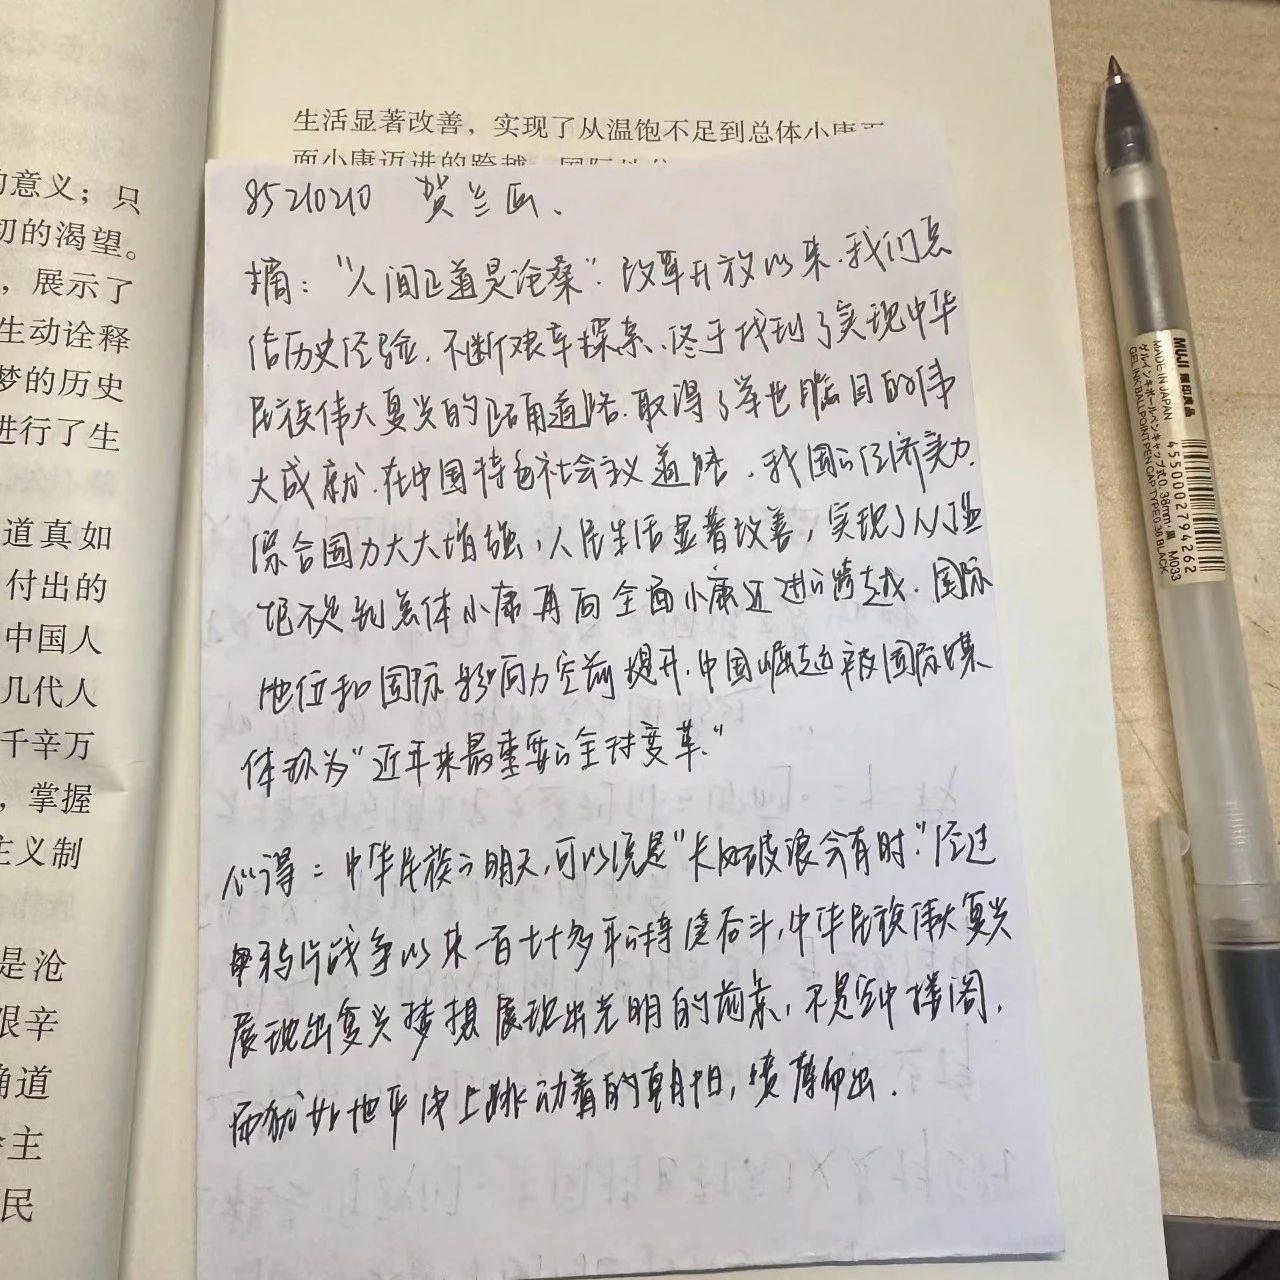 的意义；只
切的渴望。
，展示了
生动诠释
梦的历史
进行了生
道真如
付出的
中国人
几代人
千辛万
，掌握
主义制
是沧
艰辛
确道
主
民
生活显著改善，实现了从温饱不足到总体小康再
面小康迈进的跨越
85210210 贺兰
摘："人间正道是沧桑".改革开放以来.我们总
结历史经验.不断艰辛探索、终于找到了实现中华
民族伟大复兴的正确道路.取得了举世瞩目的伟
大成就.在中国特色社会主义道路，我国的经济实力.
综合国力大大增强，人民生活显著改善，实现了从温
饱不足到总体小康再向全面小康迈进的跨越.国际
地位和国际影响力空前提升.中国崛起被国际媒
体称为"近年来最重要的全球变革."
心得：中华民族的明天,可以说是"长风破浪会有时."经过
鸦片战争以来一百七十多年的持续奋斗,中华民族伟大复兴
展现出复兴梦想展现出光明的前景，不是空中楼阁，
而犹如地平线上跳动着的朝阳，喷薄而出.
MUJI 無印良品
MADE IN JAPAN
ゲルインキボールペンキャップ式0.38mm·黒 M033
GEL INK BALLPOINT PEN CAP TYPE 0.38 BLACK
4550002794262